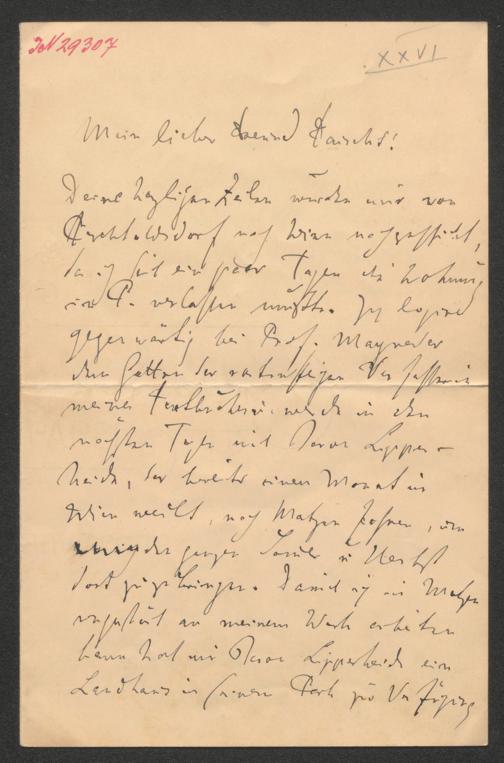 JN 29307
XXVI
Mein lieber Freund Kaischs!
Deine herzlichen Zeilen wurden mir von
Perchtoldsdorf nach Wien nachgeschickt,
da ich seit ein paar Tagen die Wohnung
in P. verlassen mußte. Ich logire
gegenwärtig bei Prof. Mayreder
dem Gatten der Verfasserin
meines Textbuches u. werde in den
nächsten Tagen mit Baron Lipper-
heide, der bereits einen Monat in
Wien weilt, nach Matzen fahren, um
den ganzen Sommer u Herbst
dort zuzubringen. Damit ich in Matzen
ungestört an meinem Werk arbeiten
kann hat mir Baron Lipperheide ein
Landhaus in seinem Park zur Verfügung